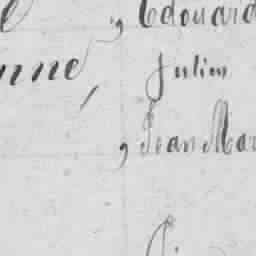 , Edouard
nne, Julien
, Jean Mar